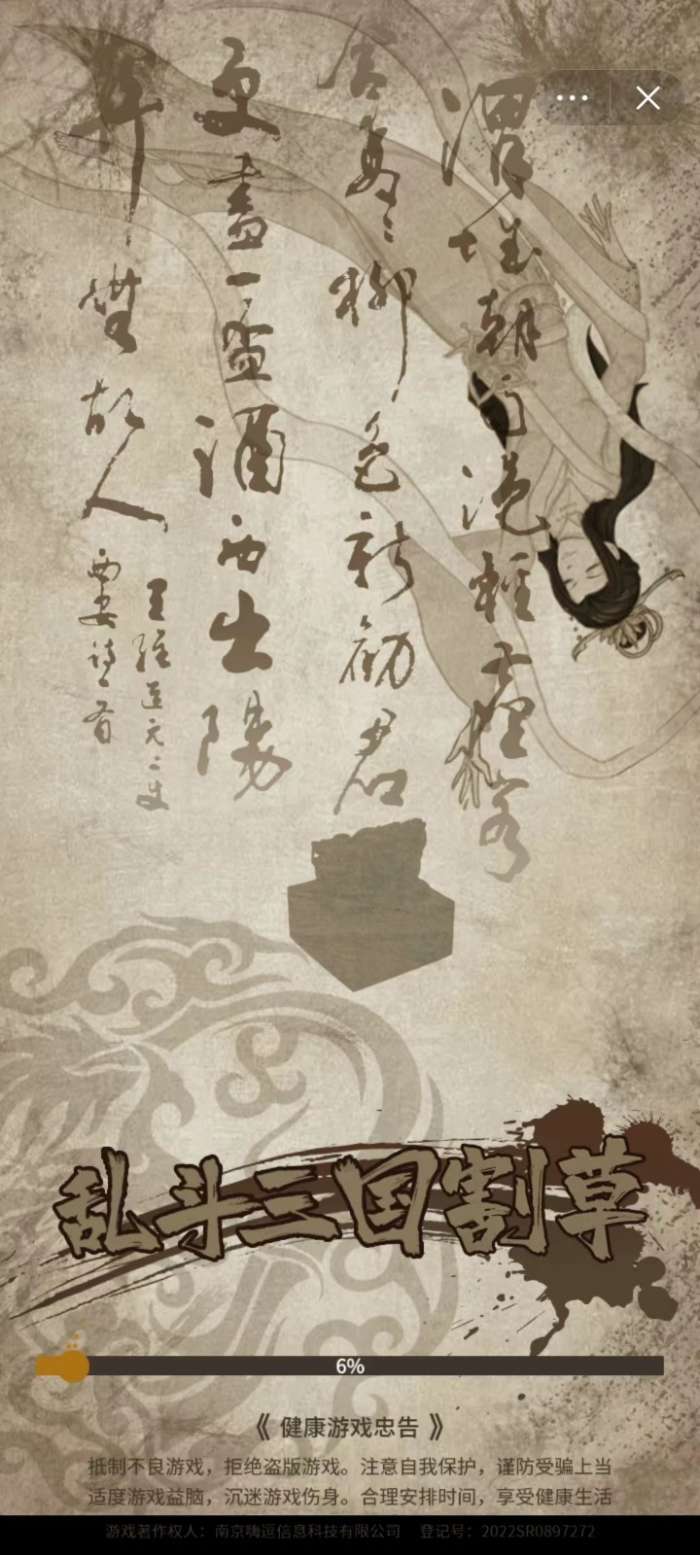 渭城朝雨浥轻尘客
舍青柳色新劝君
更尽一杯酒西出阳
关无故人
王维送元二使
西安诗一首
乱斗三国割草
6%
《健康游戏忠告》
抵制不良游戏，拒绝盗版游戏。注意自我保护，谨防受骗上当
适度游戏益脑，沉迷游戏伤身。合理安排时间，享受健康生活
游戏著作权人：南京嗨逗信息科技有限公司 登记号：2022SR0897272